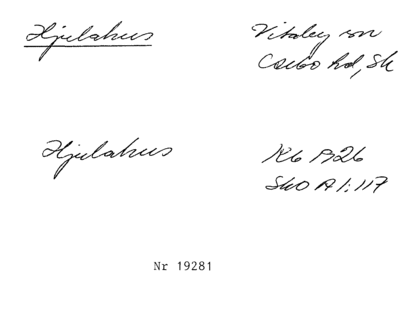 Hjulahus
Vitaby sn
Albo hd, Sk
Hjulahus
SkO A 1:117
Nr 19281